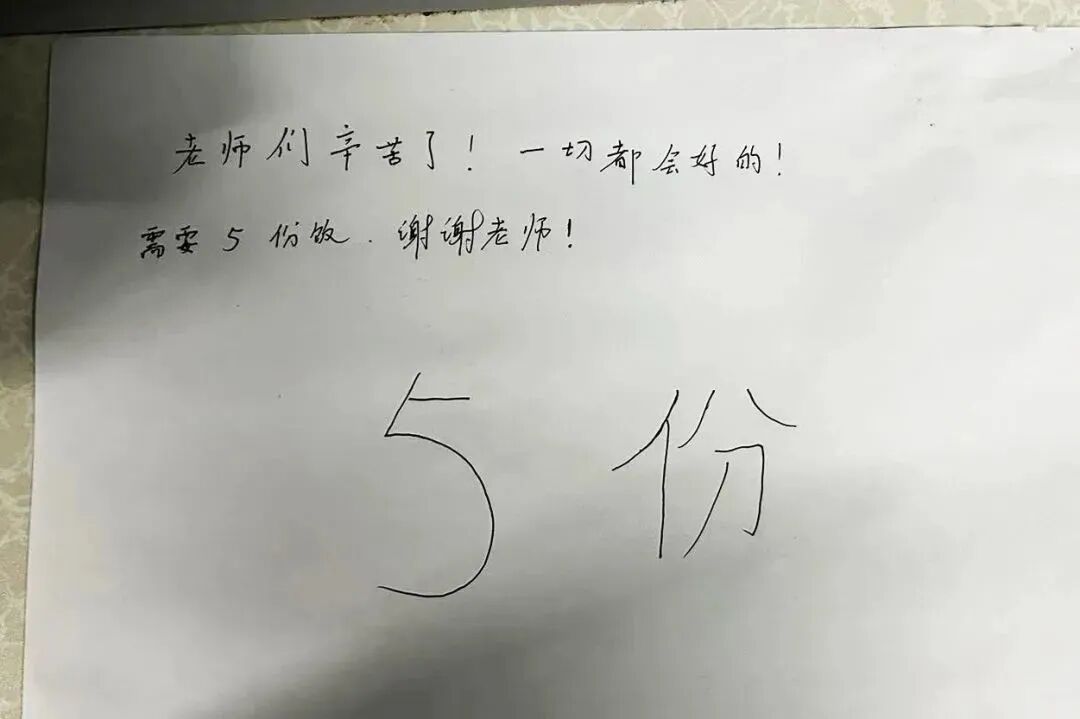 老师们辛苦了！一切都会好的！
需要5份饭．谢谢老师！
5份